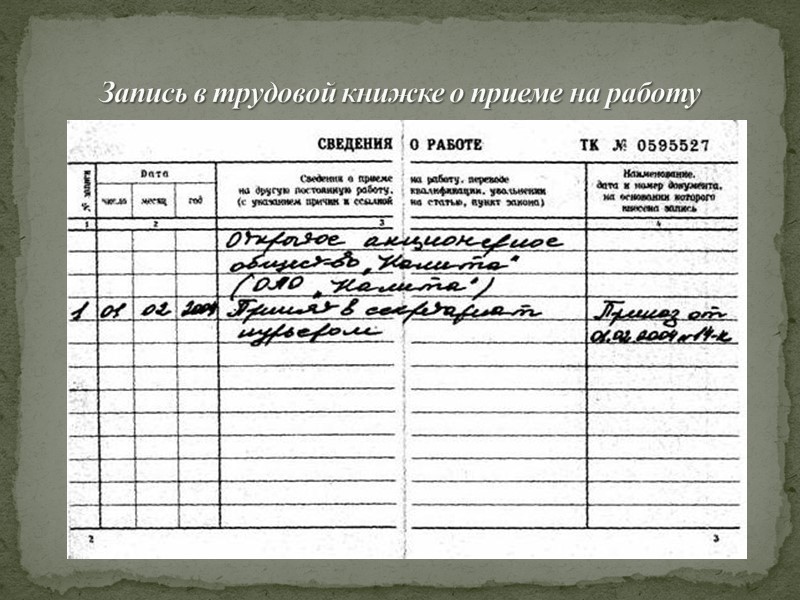 Запись в трудовой книжке о приеме на работу
СВЕДЕНИЯ О РАБОТЕ ТК № 0595527
№ записи
Дата
число месяц год
Сведения о приеме на работу, переводе
на другую постоянную работу, квалификации, увольнении
(с указанием причин и ссылкой на статью, пункт закона)
Наименование,
дата и номер документа,
на основании которого
внесена запись
1 2 3 4
Открытое акционерное
общество „Калита"
(ОАО „Калита")
1 01 02 2004 Принят в секретариат Приказ от
курьером 01.02.2004 №14-к
2 3